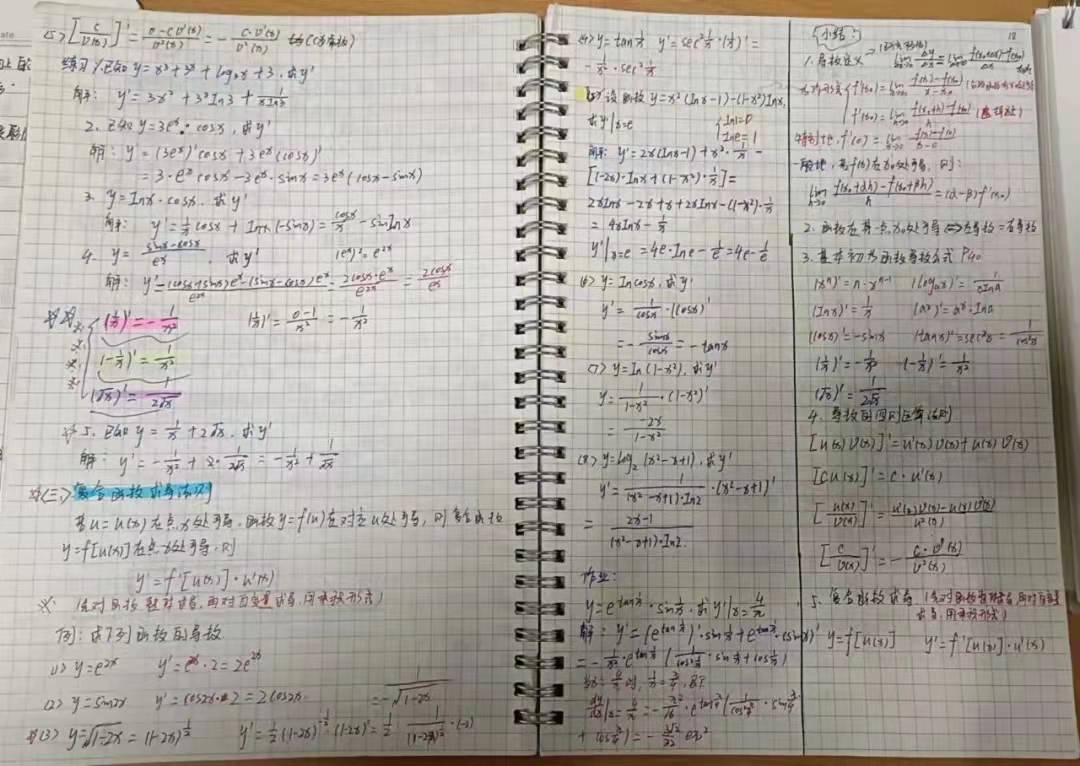 (5) [C/v(x)]' = (0-C·v'(x))/v²(x) = -C·v'(x)/v²(x) (C为常数)
练习 1.已知 y=x³+3ˣ+log₃x+3,求y'
解: y'=3x²+3ˣIn3+1/(xIn3)
2. 已知 y=3eˣ·cosx,求y'
解: y'=(3eˣ)'cosx+3eˣ(cosx)'
=3·eˣcosx-3eˣ·sinx=3eˣ(cosx-sinx)
3. y=Inx·cosx,求y'
解: y'=1/x cosx+Inx(-sinx)=cosx/x-sinxInx
4. y=(sinx-cosx)/eˣ,求y' (eˣ)²=e²ˣ
解: y'=((cosx+sinx)eˣ-(sinx-cosx)eˣ)/e²ˣ=2cosx·eˣ/e²ˣ=2cosx/eˣ
(1/x)'=-1/x² (1/x)'=(0-1)/x²=-1/x²
(-1/x)'=1/x²
(√x)'=1/(2√x)
5. 已知 y=1/x+2√x,求y'
解: y'=-1/x²+2·1/(2√x)=-1/x²+1/√x
(三)复合函数求导法则
若u=u(x)在点x处可导,函数y=f(u)在对应u处可导,则复合函数
y=f[u(x)]在点x处可导,则
y'=f'[u(x)]·u'(x)
※: (先对函数整对求导,再对自变量求导,用乘积形式)
例: 求下列函数的导数
(1) y=e²ˣ y'=e²ˣ·2=2e²ˣ
(2) y=sin2x y'=cos2x·2=2cos2x =-1/√(1-2x)
(3) y=√(1-2x)=(1-2x)^(1/2) y'=1/2(1-2x)^(-1/2)·(1-2x)'=1/2·1/(1-2x)^(1/2)·(-2)
(4) y=tan1/x y'=sec²1/x·(1/x)'=
-1/x²·sec²1/x
(5) 设函数 y=x²(Inx-1)-(1-x²)Inx,
求y'|x=e {In1=0
Ine=1
解: y'=2x(Inx-1)+x²·1/x-
[(-2x)·Inx+(1-x²)·1/x]=
2xInx-2x+x+2xInx-(1-x²)·1/x
=4xInx-1/x
y'|x=e=4e·Ine-1/e=4e-1/e
(6) y=Incosx,求y'
y'=1/cosx·(cosx)'
=-sinx/cosx=-tanx
(7) y=In(1-x²),求y'
y=1/(1-x²)·(1-x²)'
=-2x/(1-x²)
(8) y=log₂(x²-x+1),求y'
y'=1/((x²-x+1)·In2)·(x²-x+1)'
=(2x-1)/((x²-x+1)·In2)
作业:
y=e^(tan1/x)·sin1/x,求y'|x=4/π
解: y'=(e^(tan1/x))'·sin1/x+e^(tan1/x)·(sin1/x)'
=-1/x²·e^(tan1/x)(1/cos²1/x·sin1/x+cos1/x)
小结 18
1. 导数定义
特别地,f'(0)=lim x→0 (f(x)-f(0))/(x-0)
一般地,若f(x)在x₀处可导,则:
lim h→0 (f(x₀+αh)-f(x₀+βh))/h=(α-β)f'(x₀)
2. 函数在某一点x₀处可导⇔左导数=右导数
3. 基本初等函数导数公式 P40
(xⁿ)'=n·xⁿ⁻¹ (logₐx)'=1/(xIna)
(Inx)'=1/x (aˣ)'=aˣ·Ina
(cosx)'=-sinx (tanx)'=sec²x=1/cos²x
(1/x)'=-1/x² (-1/x)'=1/x²
(√x)'=1/(2√x)
4. 导数的四则运算法则
[u(x)v(x)]'=u'(x)v(x)+u(x)v'(x)
[Cu(x)]'=C·u'(x)
[u(x)/v(x)]'=(u'(x)v(x)-u(x)v'(x))/v²(x)
[C/v(x)]'=-C·v'(x)/v²(x)
5. 复合函数求导 (先对函数整体求导,再对自变量
求导,用乘积形式)
y=f[u(x)] y'=f'[u(x)]·u'(x)